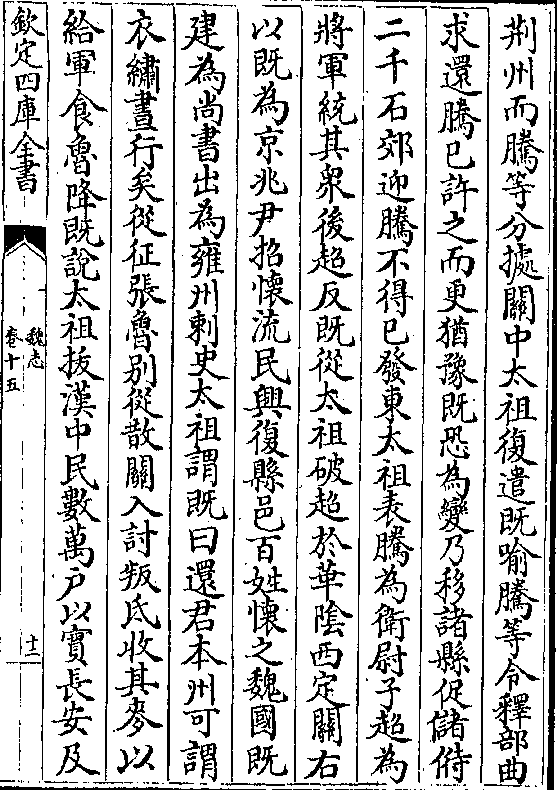 荆州而騰等分據關中太祖復遣既喻騰等令釋部曲
求還騰已許之而更猶豫既恐為變乃移諸縣促儲偫
二千石郊迎騰不得已發東太祖表騰為衛尉子超為
將軍統其衆後超反既從太祖破超於華陰西定關右
以既為京兆尹招懷流民興復縣邑百姓懷之魏國既
建為尚書出為雍州刺史太祖謂既曰還君本州可謂
衣繡晝行矣從征張魯别從散關入討叛氐收其麥以
給軍食魯降既說太祖拔漢中民數萬戶以實長安及
欽定四庫全書
魏志
卷十五
十二